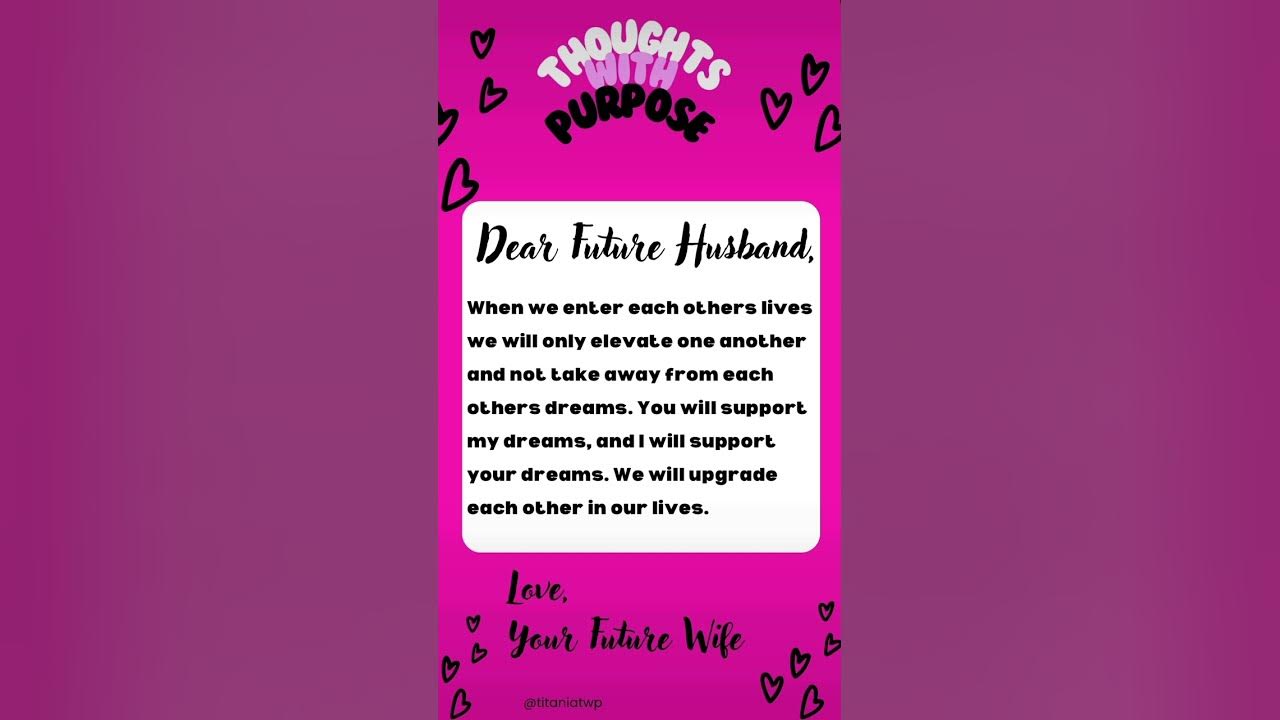 THOUGHTS
WITH
PURPOSE
Dear Future Husband,
When we enter each others lives
we will only elevate one another
and not take away from each
others dreams. You will support
my dreams, and I will support
your dreams. We will upgrade
each other in our lives.
Love,
Your Future Wife
@titaniatwp